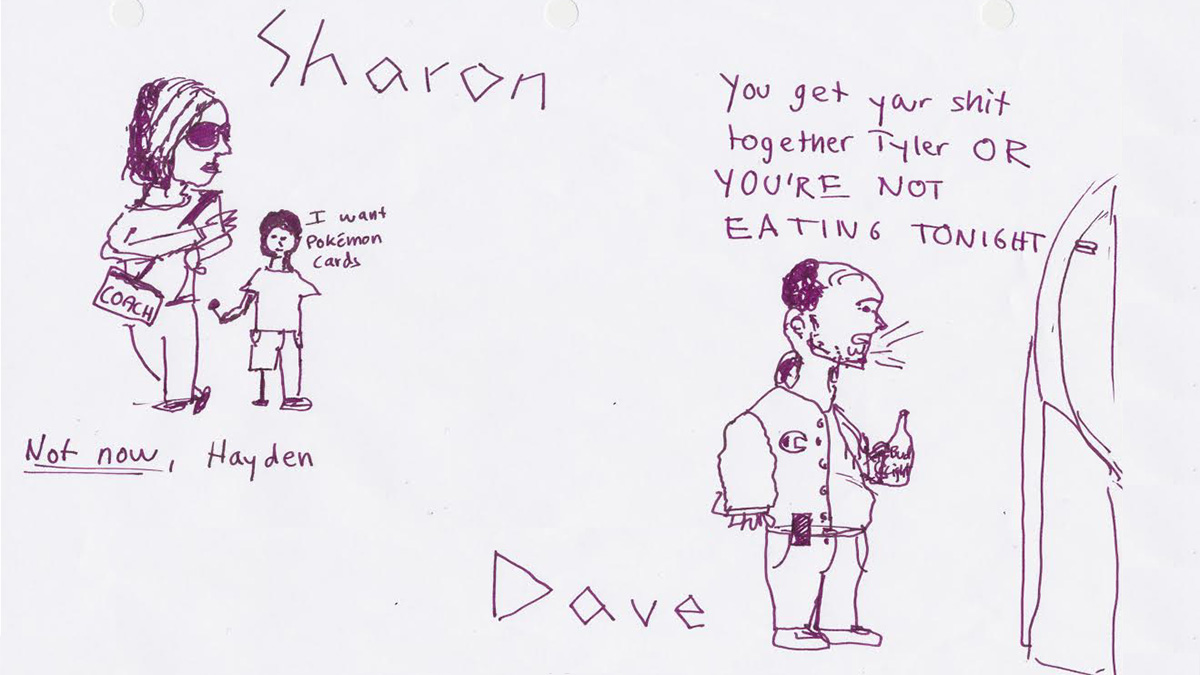 Sharon
I want
Pokémon
cards
COACH
Not now, Hayden
You get your shit
together Tyler OR
YOU'RE NOT
EATING TONIGHT
C
Bud
Light
Dave